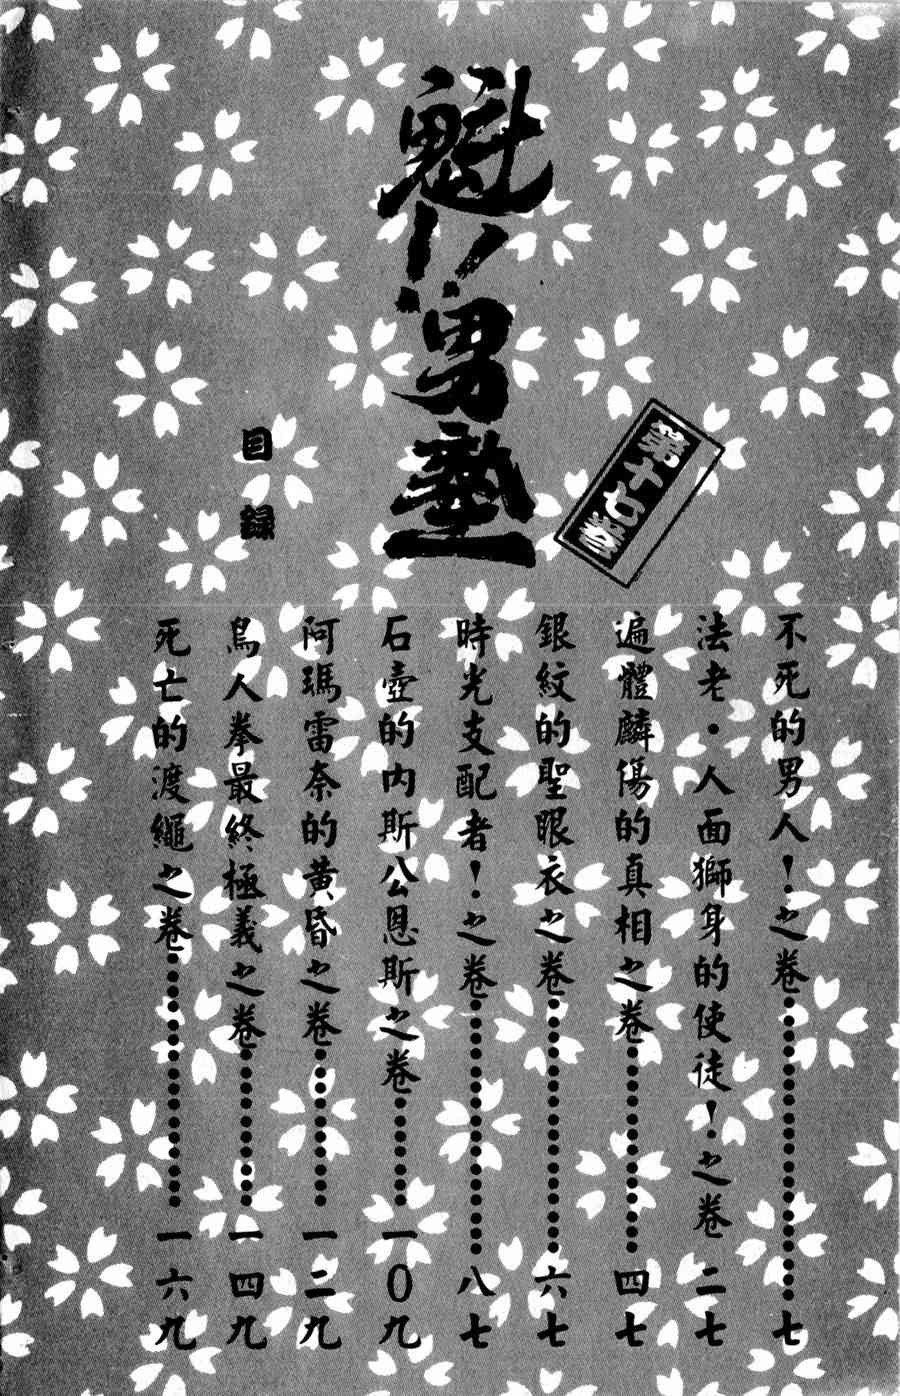 魁!!男塾
第十七卷
目錄
不死的男人!之卷………………七
法老・人面獅身的使徒!之卷 二七
遍體麟傷的真相之卷…………四七
銀紋的聖眼衣之卷……………六七
時光支配者!之卷……………八七
石壺的內斯公恩斯之卷………一0九
阿瑪雷奈的黃昏之卷…………一二九
鳥人拳最終極義之卷…………一四九
死亡的渡繩之卷………………一六九